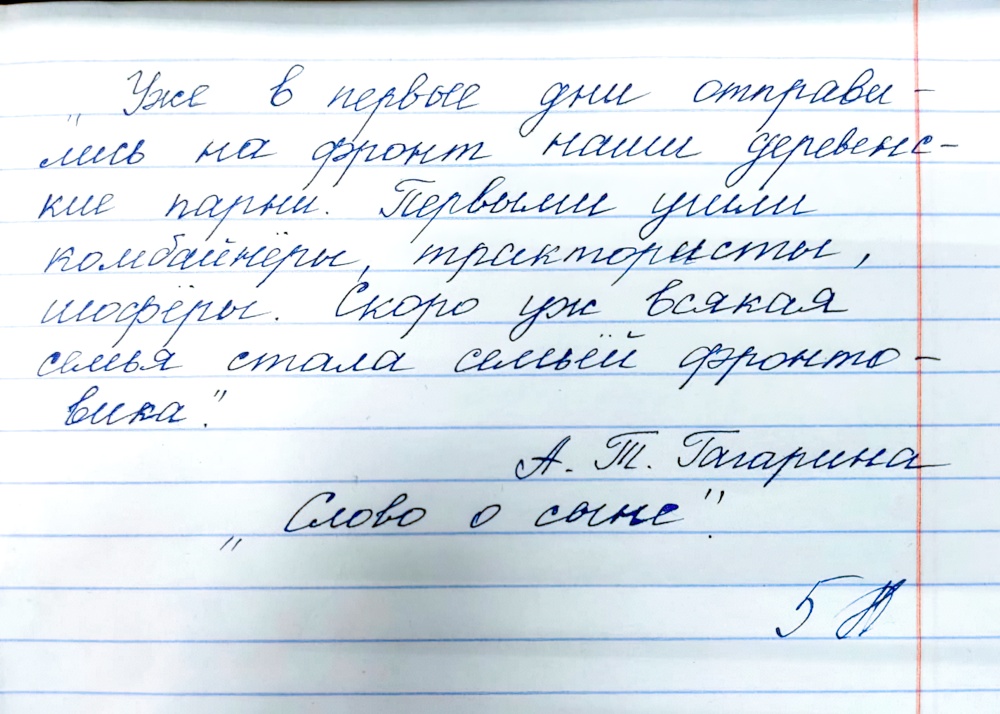 „Уже в первые дни отправи-
лись на фронт наши деревенс-
кие парни. Первыми ушли
комбайнёры, трактористы,
шофёры. Скоро уж всякая
семья стала семьёй фронто-
вика".
А. Т. Гагарина
„Слово о сыне".
5